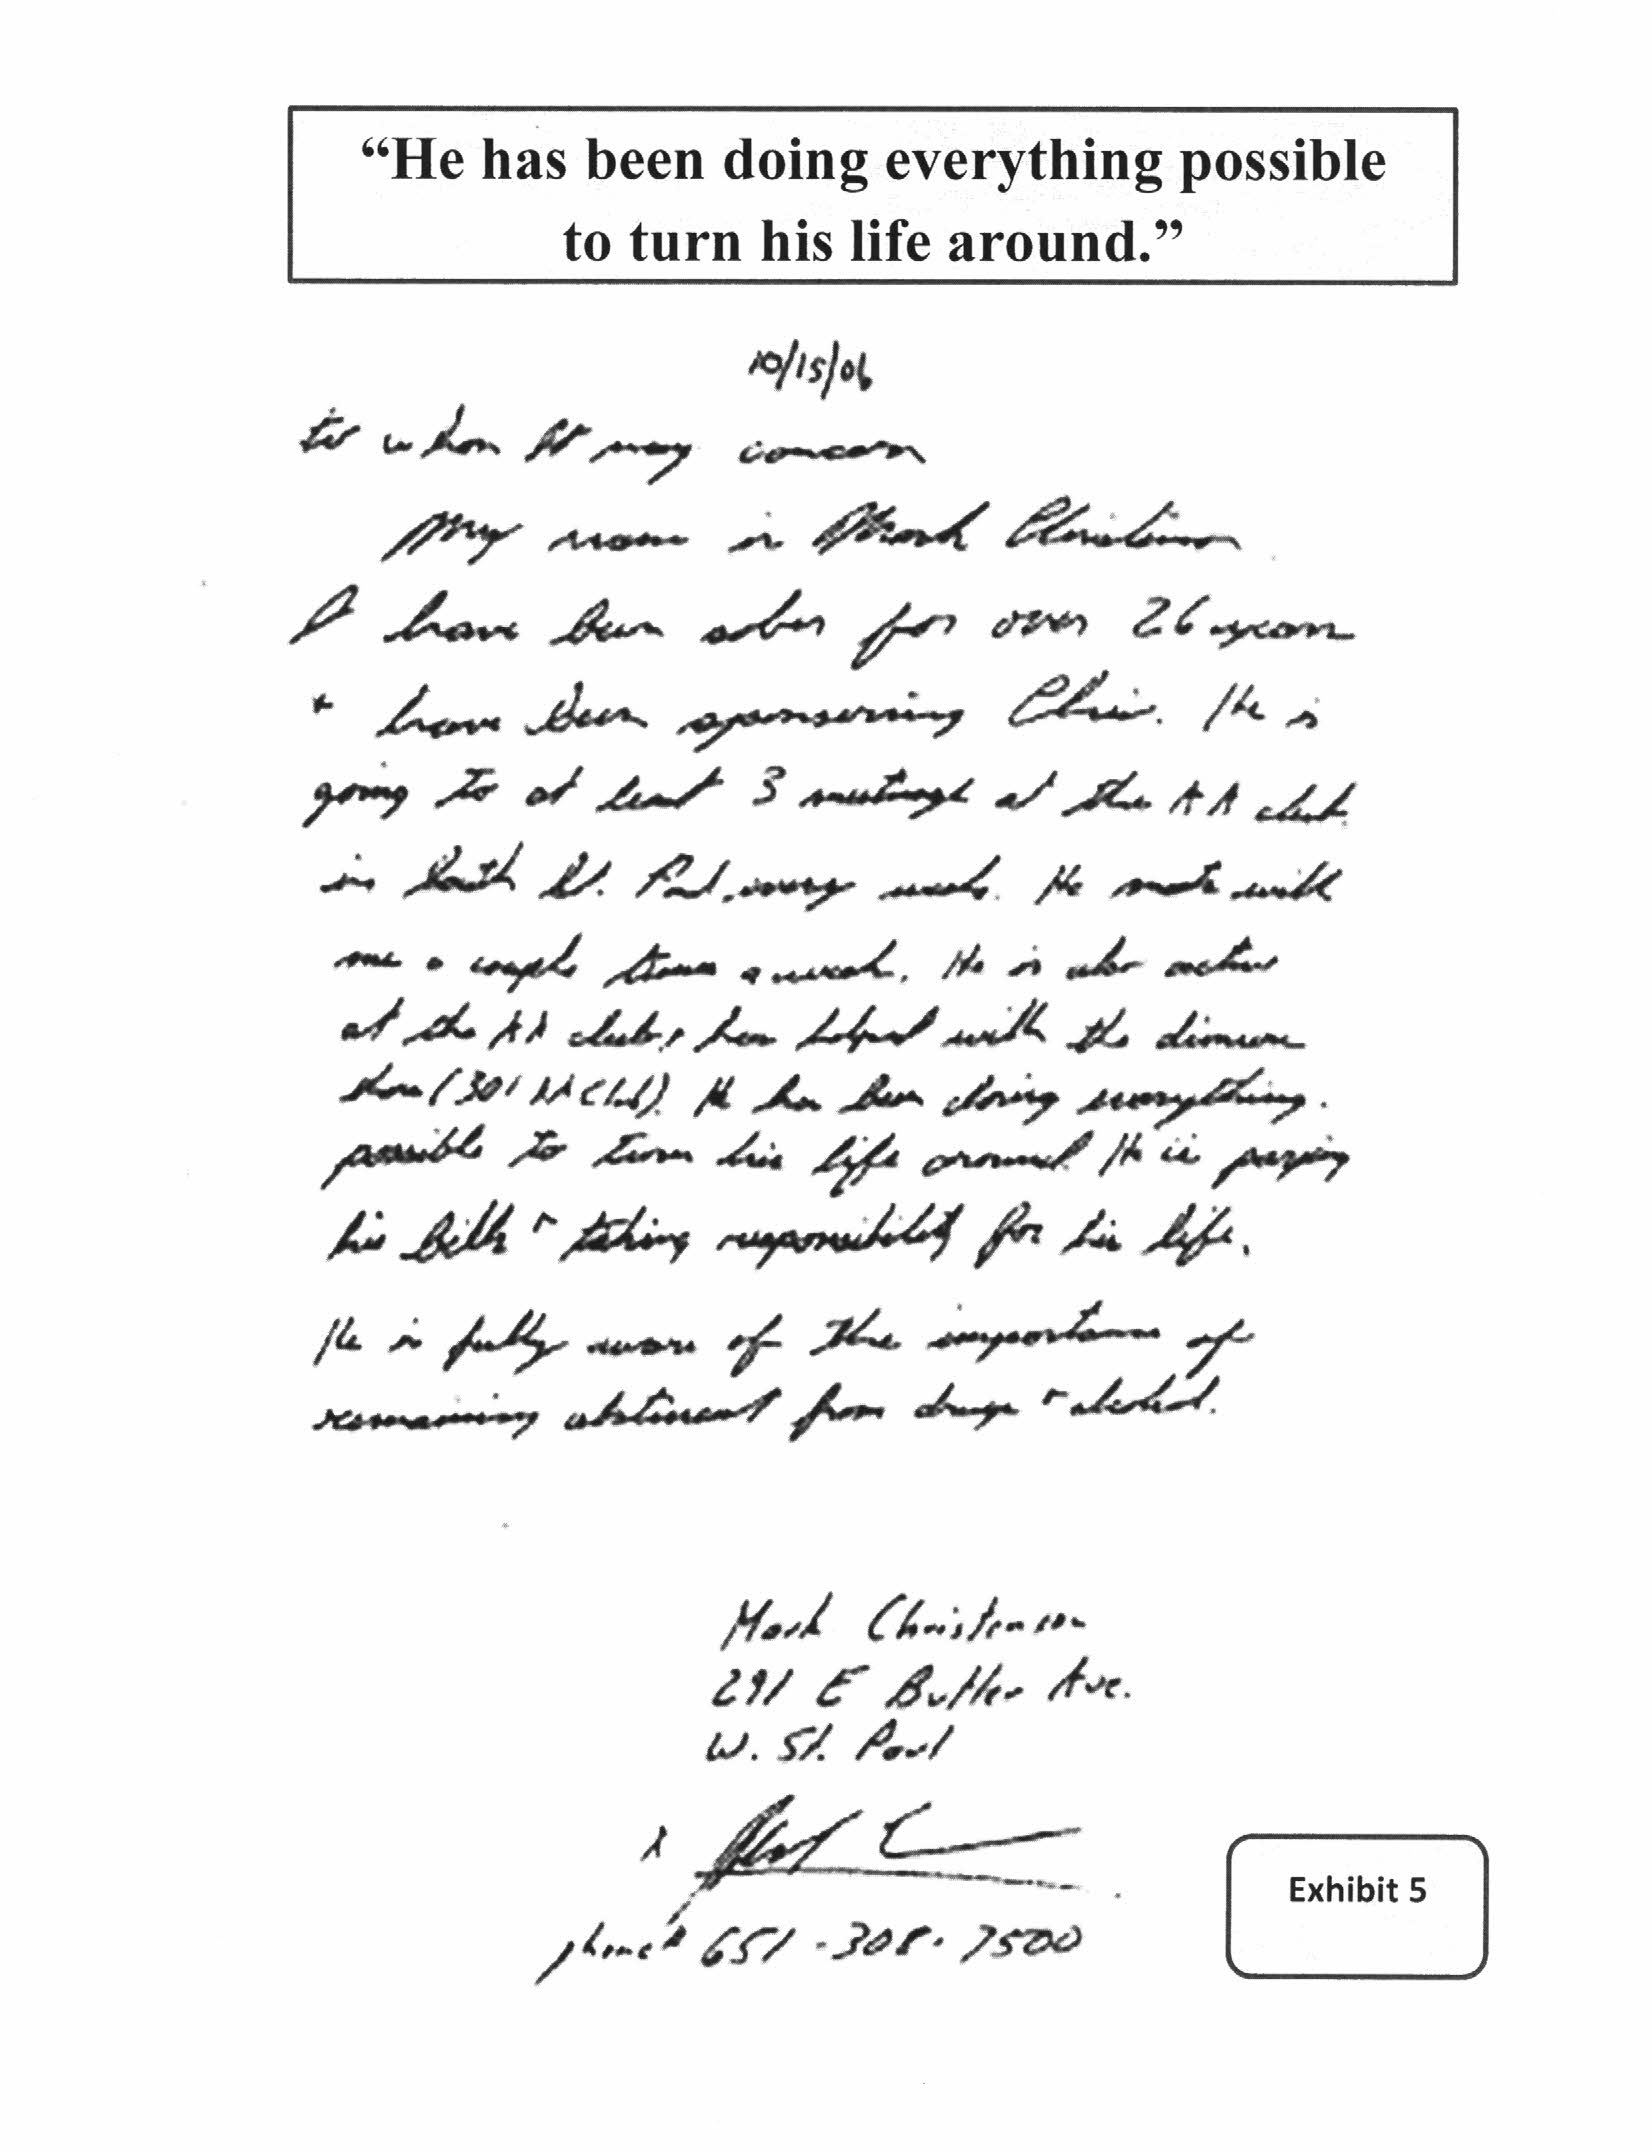 “He has been doing everything possible
to turn his life around.”
10/15/06
to whom It may concern
My name is Mark Christenson
I have been sober for over 26 years
+ have been sponsering Chris. He is
going to at least 3 meetings at the AA club
in South St. Paul every week. He meets with
me a couple times a week. He is also active
at the AA club + has helped with the
(301 AA Club). He has been doing everything
possible to turn his life around. He is paying
his bills + taking responsibility for his life.
He is fully aware of the importance of
remaining abstinent from drugs + alcohol.
Mark Christenson
291 E Butler Ave.
W. St. Paul
x
phone# 651-308-7500
Exhibit 5